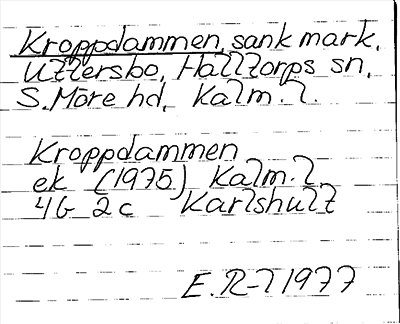 Kroppdammen, sank mark,
Uttersbo, Halltorps sn,
S. Möre hd, Kalm. l.
Kroppdammen
ek (1975) Kalm. l
4G 2c Karlshult
E. R-T 1977